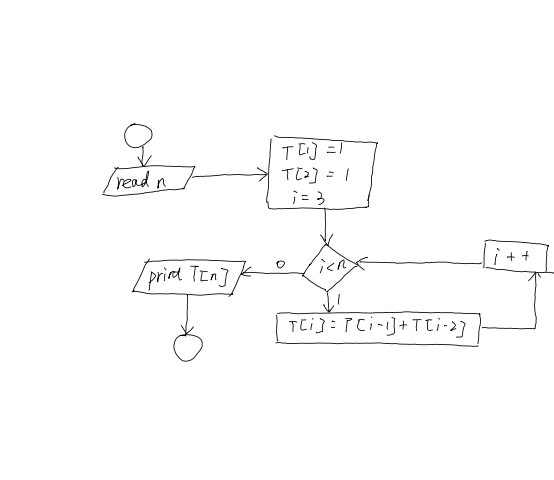 read n
T[1] = 1
T[2] = 1
i = 3
i < n
0
1
print T[n]
i + +
T[i] = T[i-1] + T[i-2]